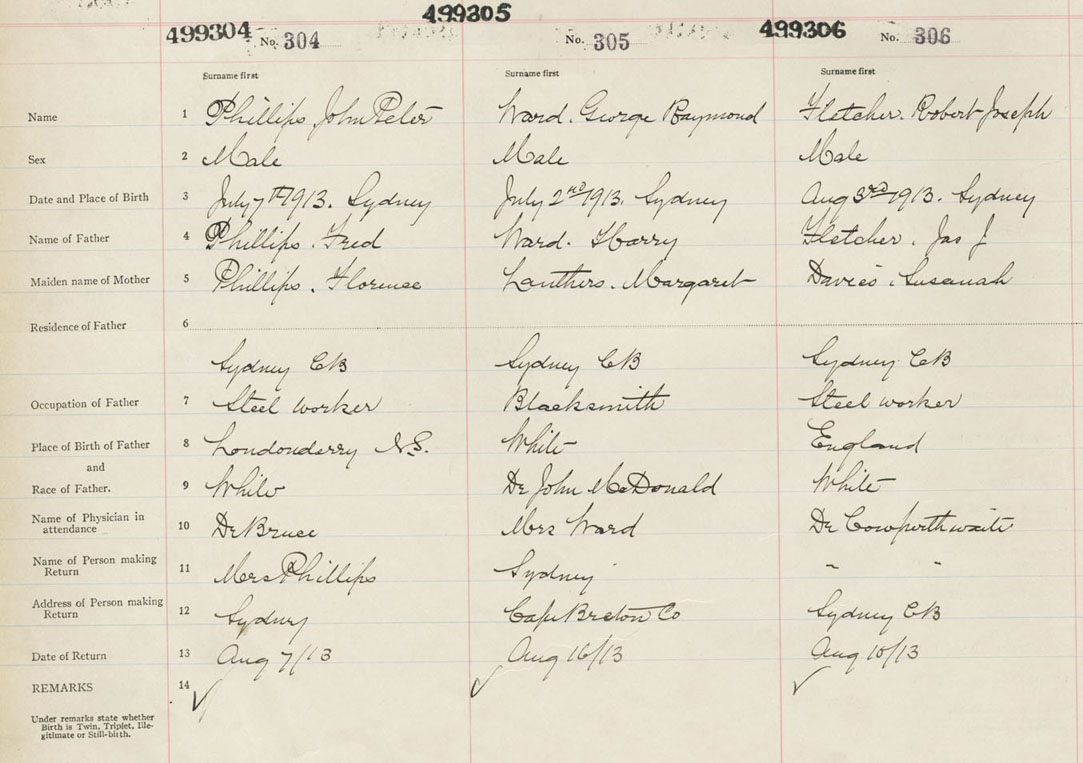 499304 No. 304 499305 No. 305 499306 No. 306
Surname first Surname first Surname first
Name 1 Phillips John Peter Ward. George Raymond Fletcher. Robert Joseph
Sex 2 Male Male Male
Date and Place of Birth 3 July 7th 1913. Sydney July 2nd 1913. Sydney Aug 3rd 1913. Sydney
Name of Father 4 Phillips. Fred Ward. Harry Fletcher. Jas J
Maiden name of Mother 5 Phillips. Florence Lanthers. Margaret Davies. Susanah
Residence of Father 6
Sydney CB Sydney CB Sydney CB
Occupation of Father 7 Steel worker Blacksmith Steel worker
Place of Birth of Father 8 Londonderry N.S. White England
and
Race of Father. 9 White Dr John McDonald White
Name of Physician in
attendance 10 Dr Bruce Mrs Ward Dr Cowperthwaite
Name of Person making
Return 11 Mrs Phillips Sydney " "
Address of Person making
Return 12 Sydney Cape Breton Co Sydney CB
Date of Return 13 Aug 7/13 Aug 16/13 Aug 10/13
REMARKS 14
Under remarks state whether
Birth is Twin, Triplet, Ille-
gitimate or Still-birth.